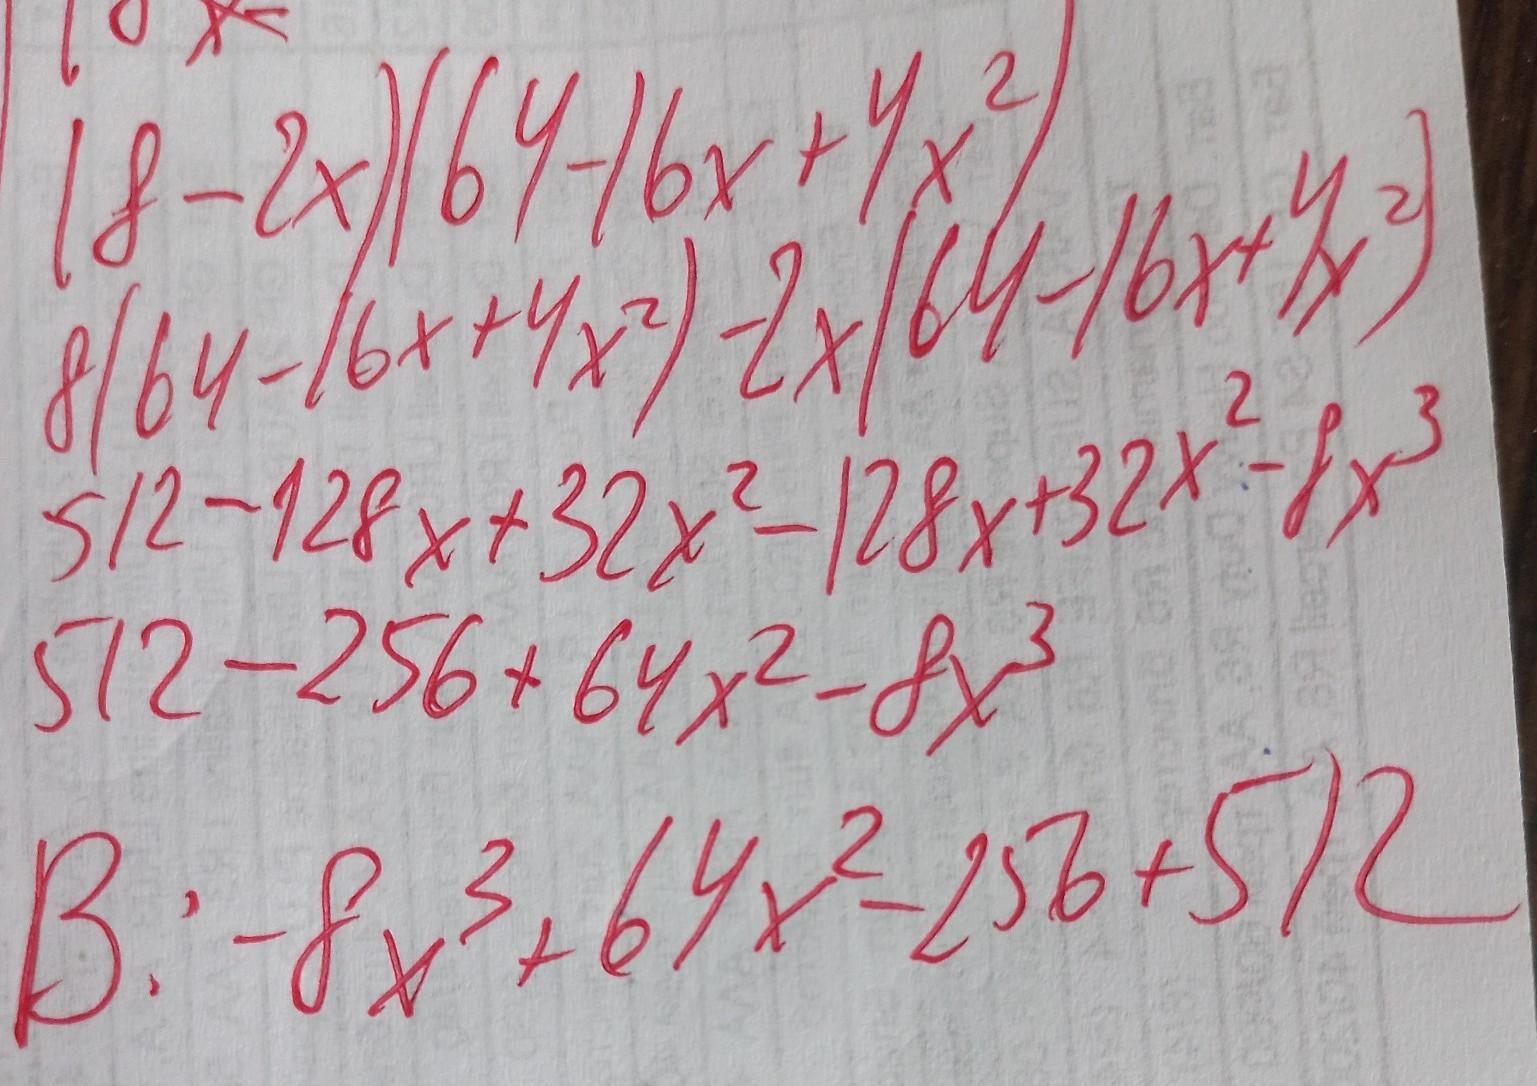 (8-2x)(64-16x+4x²)
8(64-16x+4x²)-2x(64-16x+4x²)
512-128x+32x²-128x+32x²-8x³
512-256+64x²-8x³
B: -8x³+64x²-256+512